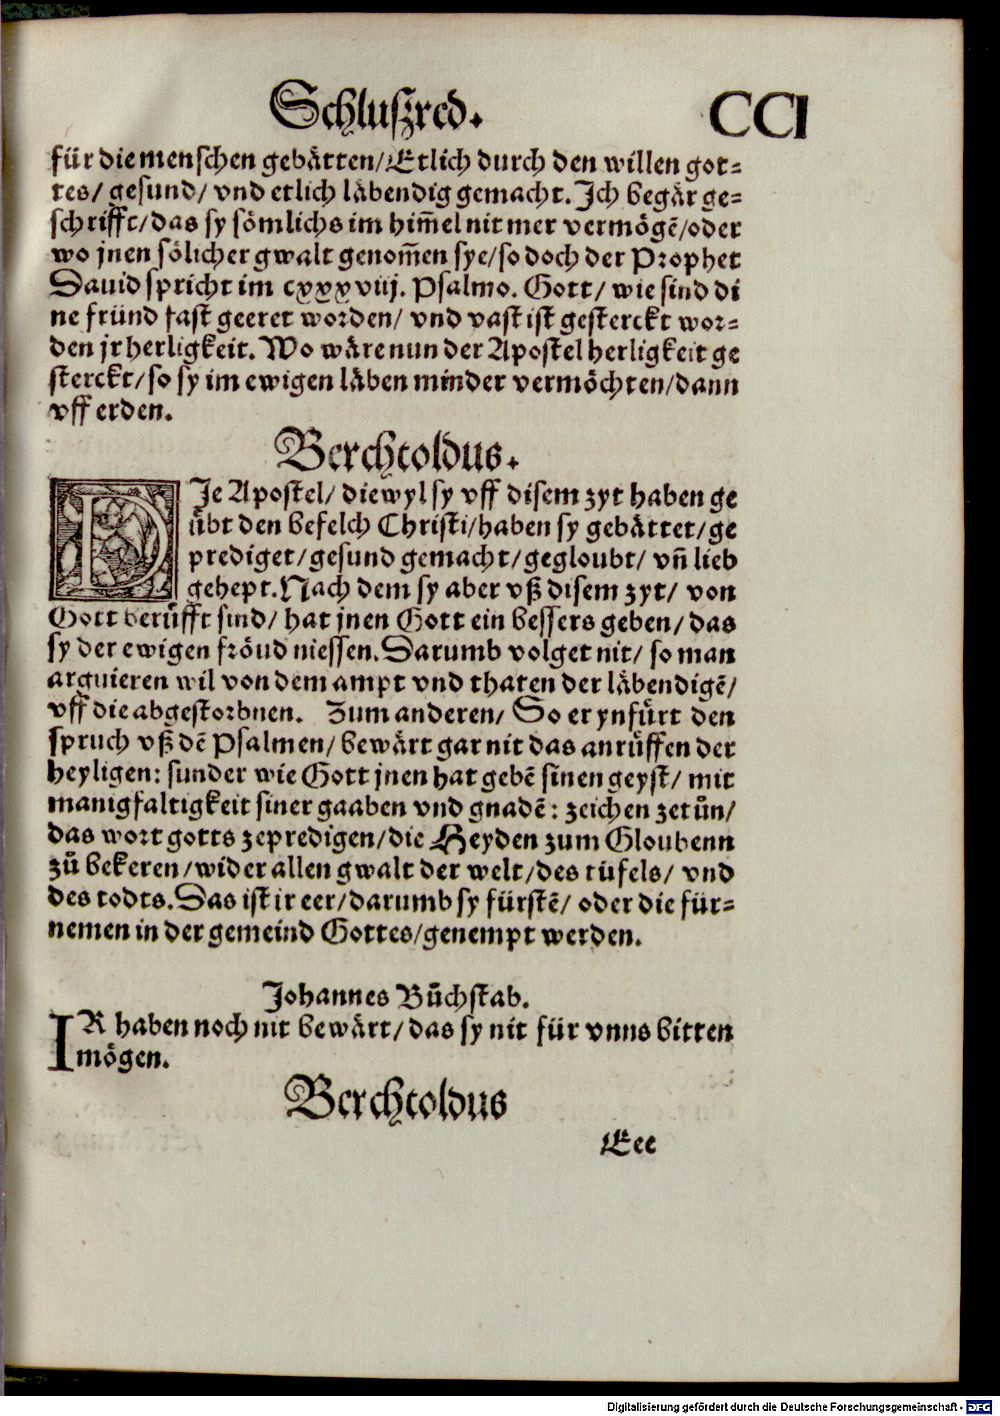 Schluszred. CCI
für die menschen gebätten/ Etlich durch den willen got⸗
tes/ gesund/ vnd etlich läbendig gemacht. Ich begär ge⸗
schrifft/ das sy sömlichs im him̄el nit mer vermögē/ oder
wo jnen sölicher gwalt genom̄en sye/ so doch der Prophet
Dauid spricht im cxxxviij. Psalmo. Gott/ wie sind di
ne fründ fast geeret worden/ vnd vast ist gesterckt wor⸗
den jr herligkeit. Wo wäre nun der Apostel herligkeit ge
sterckt/ so sy im ewigen läben minder vermöchten/ dann
vff erden.
Berchtoldus.
DIe Apostel/ diewyl sy vff disem zyt haben ge
übt den befelch Christi/ haben sy gebättet/ ge
prediget/ gesund gemacht/ gegloubt/ vn̄ lieb
gehept. Nach dem sy aber vß disem zyt/ von
Gott berůfft sind/ hat jnen Gott ein bessers geben/ das
sy der ewigen fröud niessen. Darumb volget nit/ so man
arguieren wil von dem ampt vnd thaten der läbendigē/
vff die abgestorbnen. Zum anderen/ So er ynfürt den
spruch vß dē Psalmen/ bewärt gar nit das anrůffen der
heyligen: sunder wie Gott jnen hat gebē sinen geyst/ mit
manigfaltigkeit siner gaaben vnd gnadē: zeichen zetůn/
das wort gotts zepredigen/ die Heyden zum Gloubenn
zů bekeren/ wider allen gwalt der welt/ des tüfels/ vnd
des todts. Das ist ir eer/ darumb sy fürstē/ oder die für⸗
nemen in der gemeind Gottes/ genempt werden.
Johannes Bůchstab.
IR haben noch nit bewärt/ das sy nit für vnns bitten
mögen.
Berchtoldus
Eee
Digitalisierung gefördert durch die Deutsche Forschungsgemeinschaft - DFG